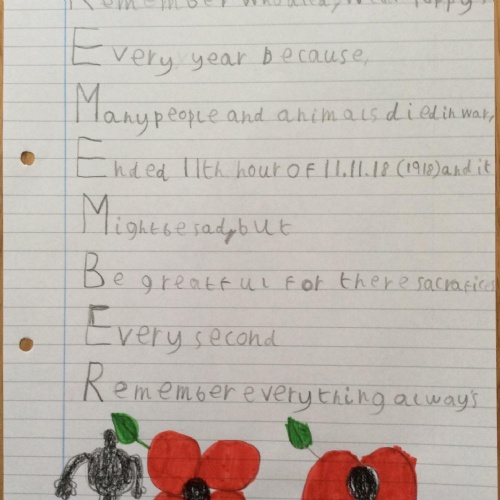 Remember who died, wear poppy
Every year because,
Many people and animals died in war,
Ended 11th hour of 11.11.18 (1918) and it
Might be sad, but
Be greatful for there sacrafices
Every second
Remember everything always